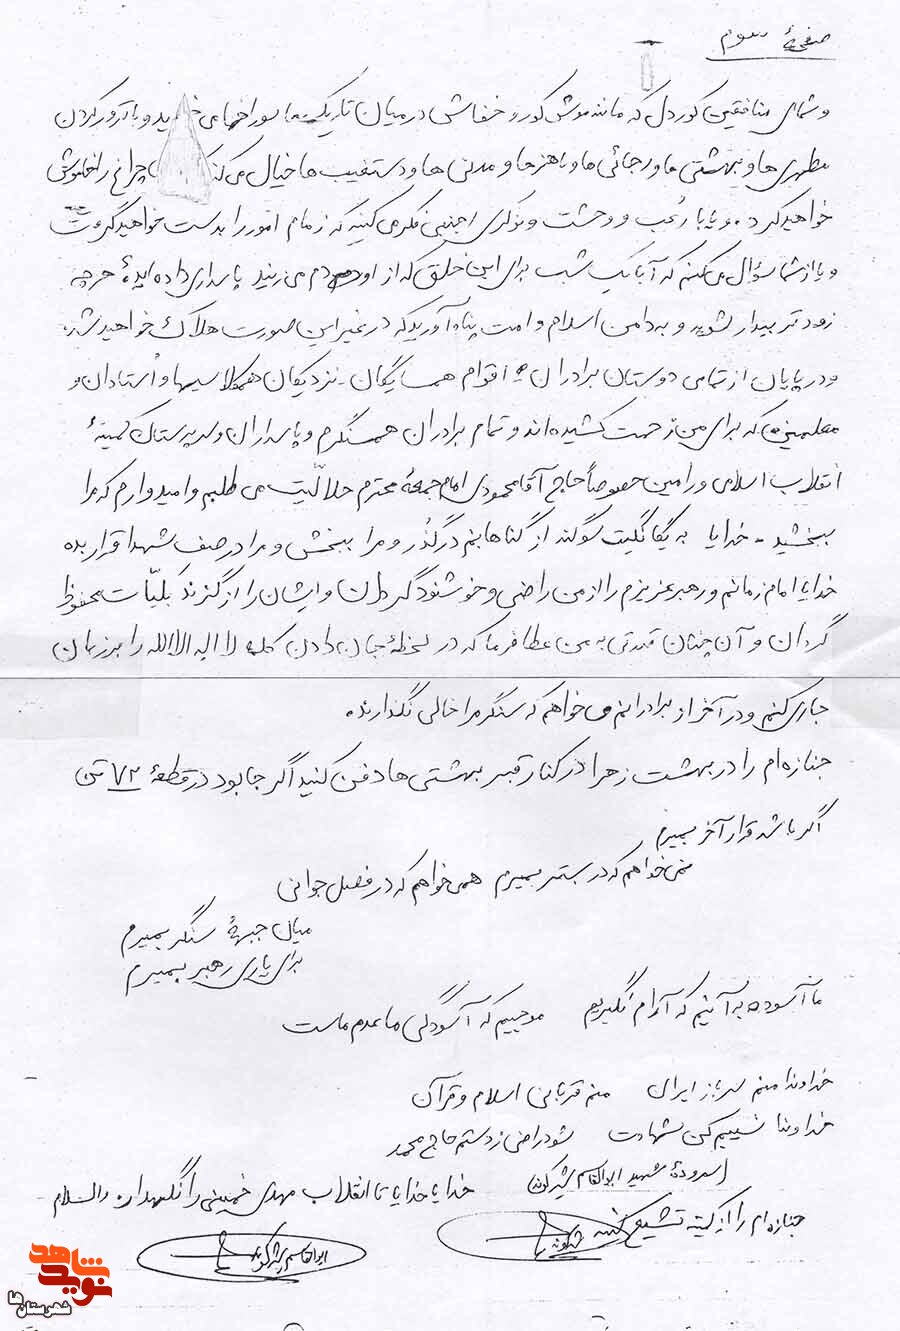 صفحهٔ سوم
و شمای منافقین کوردل که مانند موش کور و خفاش در میان تاریکی‌ها سوراخها می و با ترور کردن
مطهری ها و بهشتی ها و رجائی ها و باهنرها و مدنی ها و دستغیب ها خیال می چراغ را خاموش
خواهید کرد. و یا با رعب و وحشت و نوکری اجنبی فکر می کنید که زمام امور را بدست خواهید گرفت
و یا از شما سؤال می کنم که آیا یک شب برای این خلق که از او دم می زنید پاسداری داده اید؟ هر چه
زودتر بیدار شوید و به دامن اسلام و امت پناه آورید که در غیر این صورت هلاک خواهید شد.
و در پایان از تمامی دوستان برادران اقوام همسایگان - نزدیکان همکلاسیها و اُستادان و
معلمینی که برای من زحمت کشیده اند و تمام برادران همسنگرم و پاسداران و سرپرستان کمیتهٔ
انقلاب اسلامی ورامین خصوصاً حاج آقا محمودی امام جمعهٔ محترم حلالیّت می طلبم و امیدوارم که مرا
ببخشید - خدایا به یگانگیت سوگند از گناهانم درگذُر و مرا ببخش و مرا در صف شهدا قرار بده
خدایا امام زمانم و رهبر عزیزم را از من راضی و خوشنود گردان و ایشان را از گزند بلیّات محفوظ
گردان و آن چنان قدرتی به من عطا فرما که در لحظهٔ جان دادن کلمه لا اله الا الله را بر زبان
جاری کنم و در آخر از برادرانم می خواهم که سنگر مرا خالی نگذارند.
جنازه ام را در بهشت زهرا در کنار قبر بهشتی ها دفن کنید اگر جا بود در قطعهٔ ۷۲ تن
اگر باشد قرار آخر بمیرم
نمی خواهم که در بستر بمیرم همی خواهم که در فصل جوانی
میان جبههٔ سنگر بمیرم
برای یاری رهبر بمیرم
ما آسوده به آنیم که آرام نگیریم موجیم که آسودگی ما عدم ماست
خداوندا منم سرباز ایران منم قربانی اسلام و قرآن
خداوندا نسیبم کن شهادت شود راضی ز دستم حاج محمد
(سرودهٔ شهید ابوالقاسم شیرکوند) خدایا خدایا تا انقلاب مهدی خمینی را نگهدار. والسلام
جنازه ام را از کمیته تشییع کنید شیرکوند
ابوالقاسم شیرکوند
نوید شاهد
شهرستان‌ها